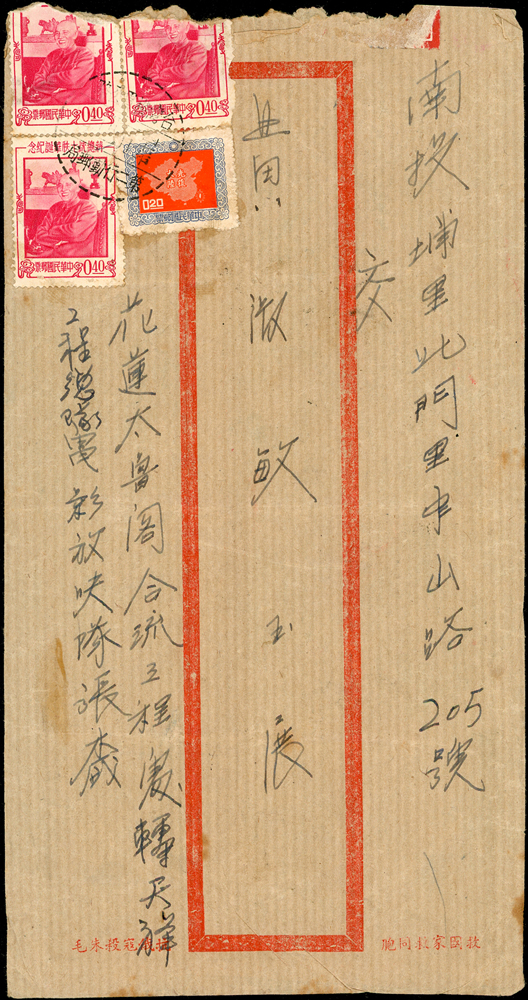 南投埔里北門里中山路205號
交
淑敏玉展
花蓮太魯閣合流工程處轉天祥
工程總隊電影放映隊張
救國家救同胞
殺朱毛
0.40 中華民國郵票
0.40 中華民國郵票
總統七秩華誕紀念
0.40 中華民國郵票
0.20
中華民國郵票